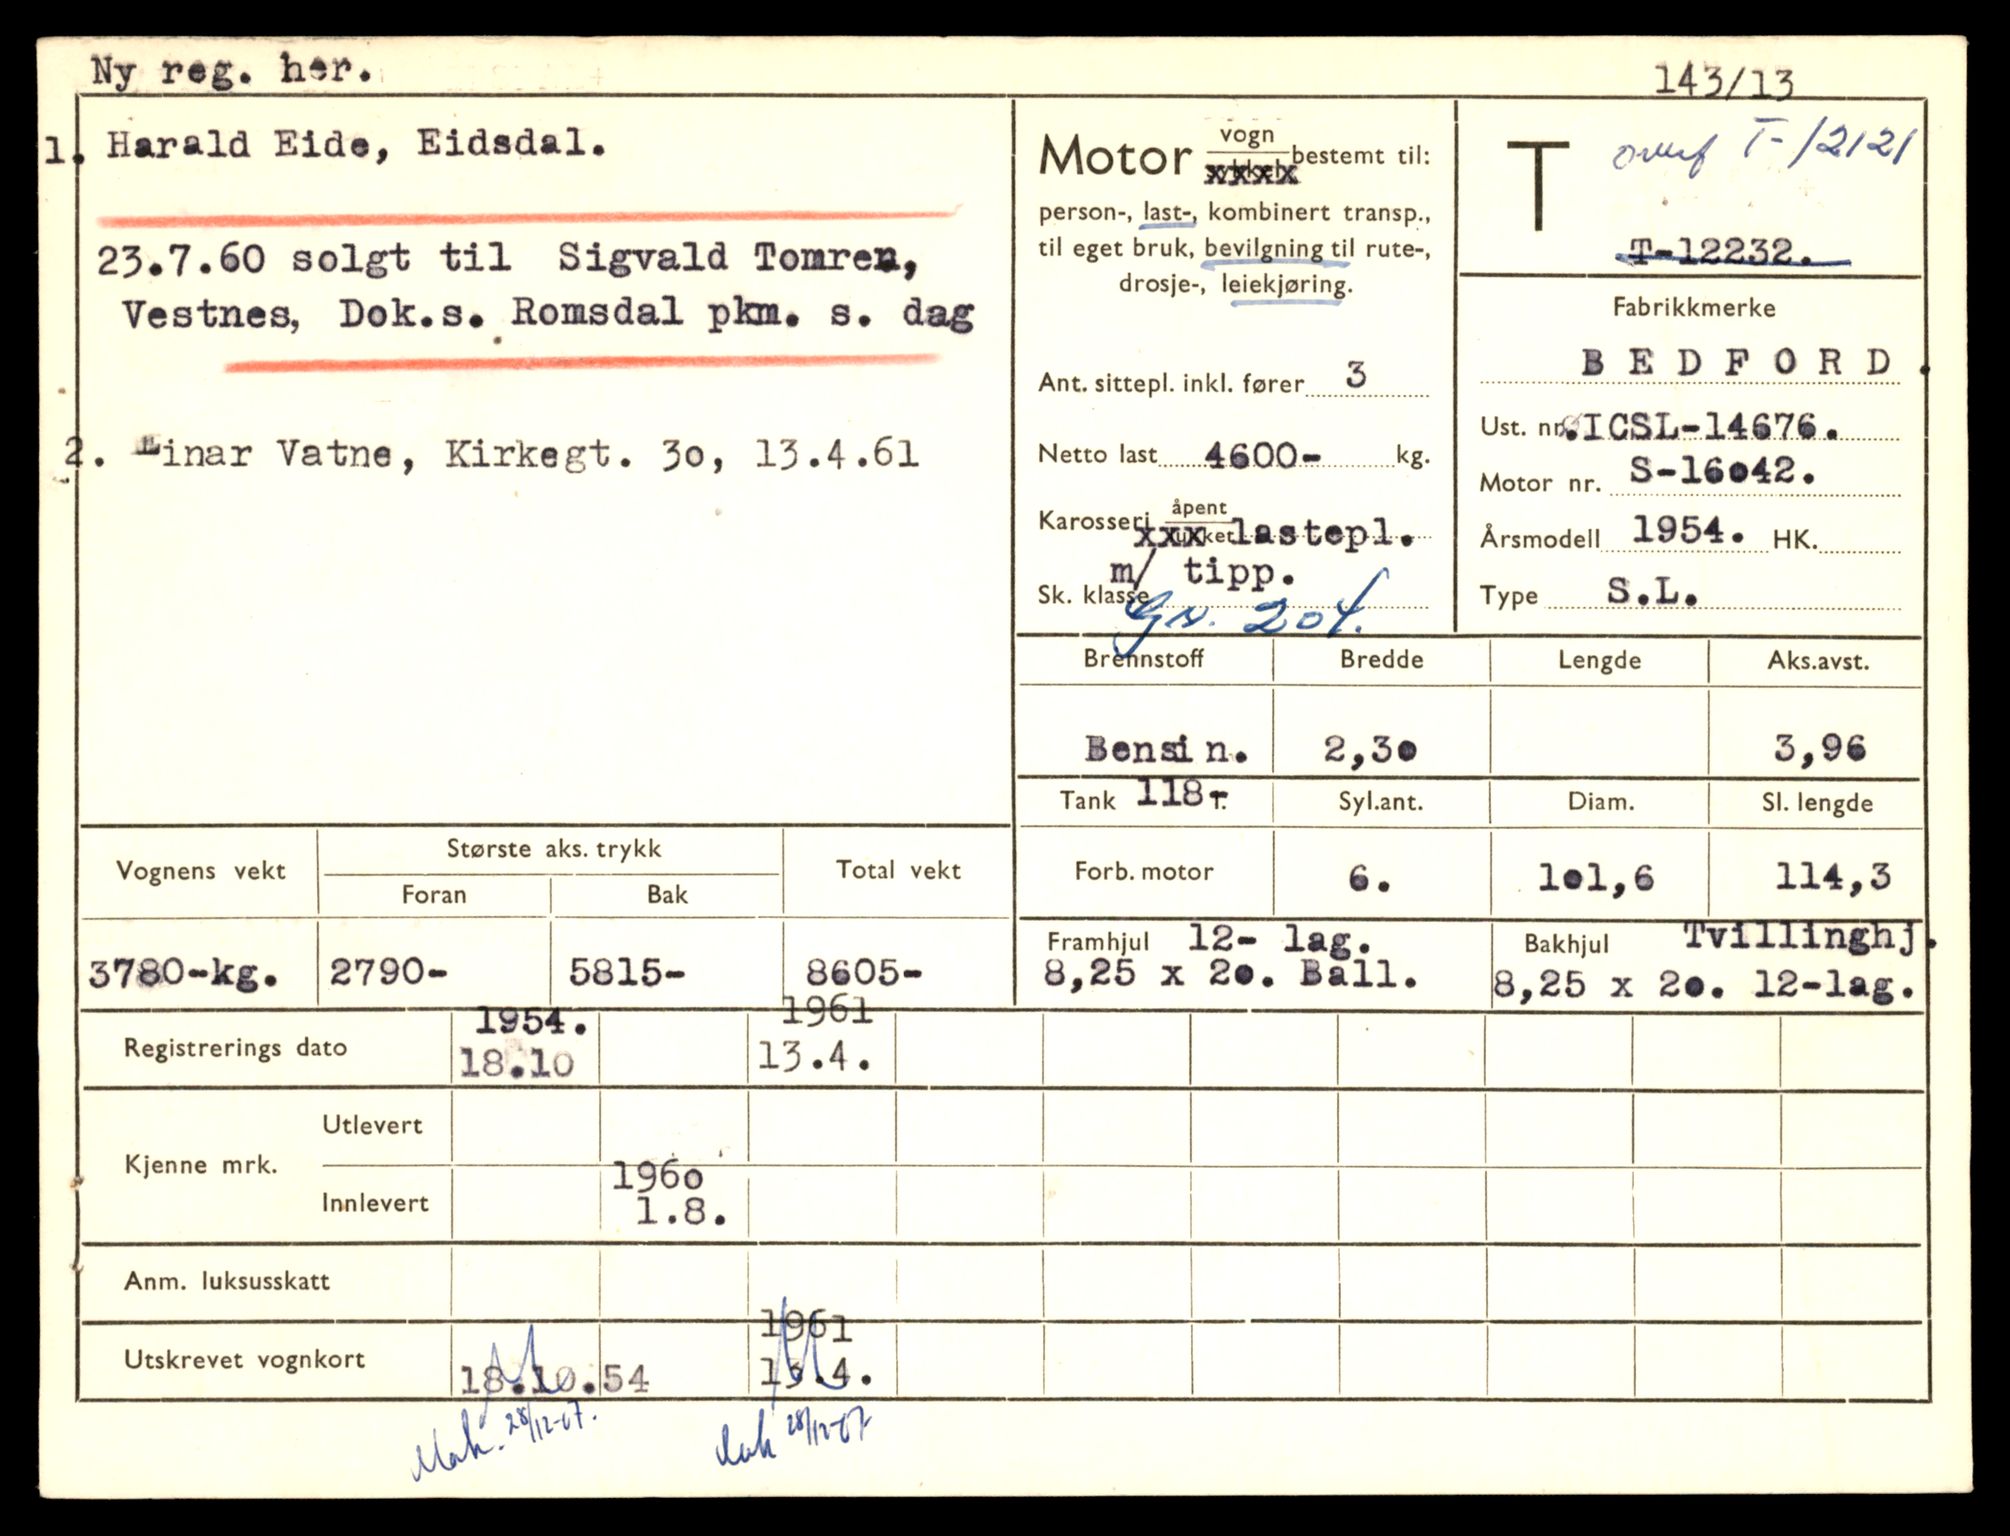 Ny reg. her.
143/13
1. Harald Eide, Eidsdal.
23.7.60 solgt til Sigvald Tomren,
Vestnes, Dok.s. Romsdal pkm. s. dag
2. Einar Vatne, Kirkegt. 3o, 13.4.61
Motor vogn xxxx bestemt til:
person-, last-, kombinert transp.,
til eget bruk, bevilgning til rute-,
drosje-, leiekjøring.
Ant. sittepl. inkl. fører 3
Netto last 4600- kg.
Karosseri åpent xxxukket lastepl.
m/ tipp.
Sk. klasse Gn. 204.
T overf T-12121
T-12232.
Fabrikkmerke
BEDFORD.
Ust. nr. ICSL-14676.
Motor nr. S-16o42.
Årsmodell 1954. HK.
Type S.L.
Brennstoff Bredde Lengde Aks.avst.
Bensin. 2,3o 3,96
Tank 118 T. Syl.ant. Diam. Sl. lengde
Forb. motor 6. 1o1,6 114,3
Framhjul 12- lag.
8,25 x 2o. Ball.
Bakhjul Tvillinghj.
8,25 x 2o. 12-lag.
Vognens vekt Største aks. trykk Total vekt
Foran Bak
3780-kg. 2790- 5815- 8605-
1954. 1961
Registrerings dato 18.10 13.4.
Kjenne mrk.
Utlevert
Innlevert 196o
1.8.
Anm. luksusskatt
1961
Utskrevet vognkort 18.10.54 13.4.
Mak. 28/12-67. Mak 28/12-67